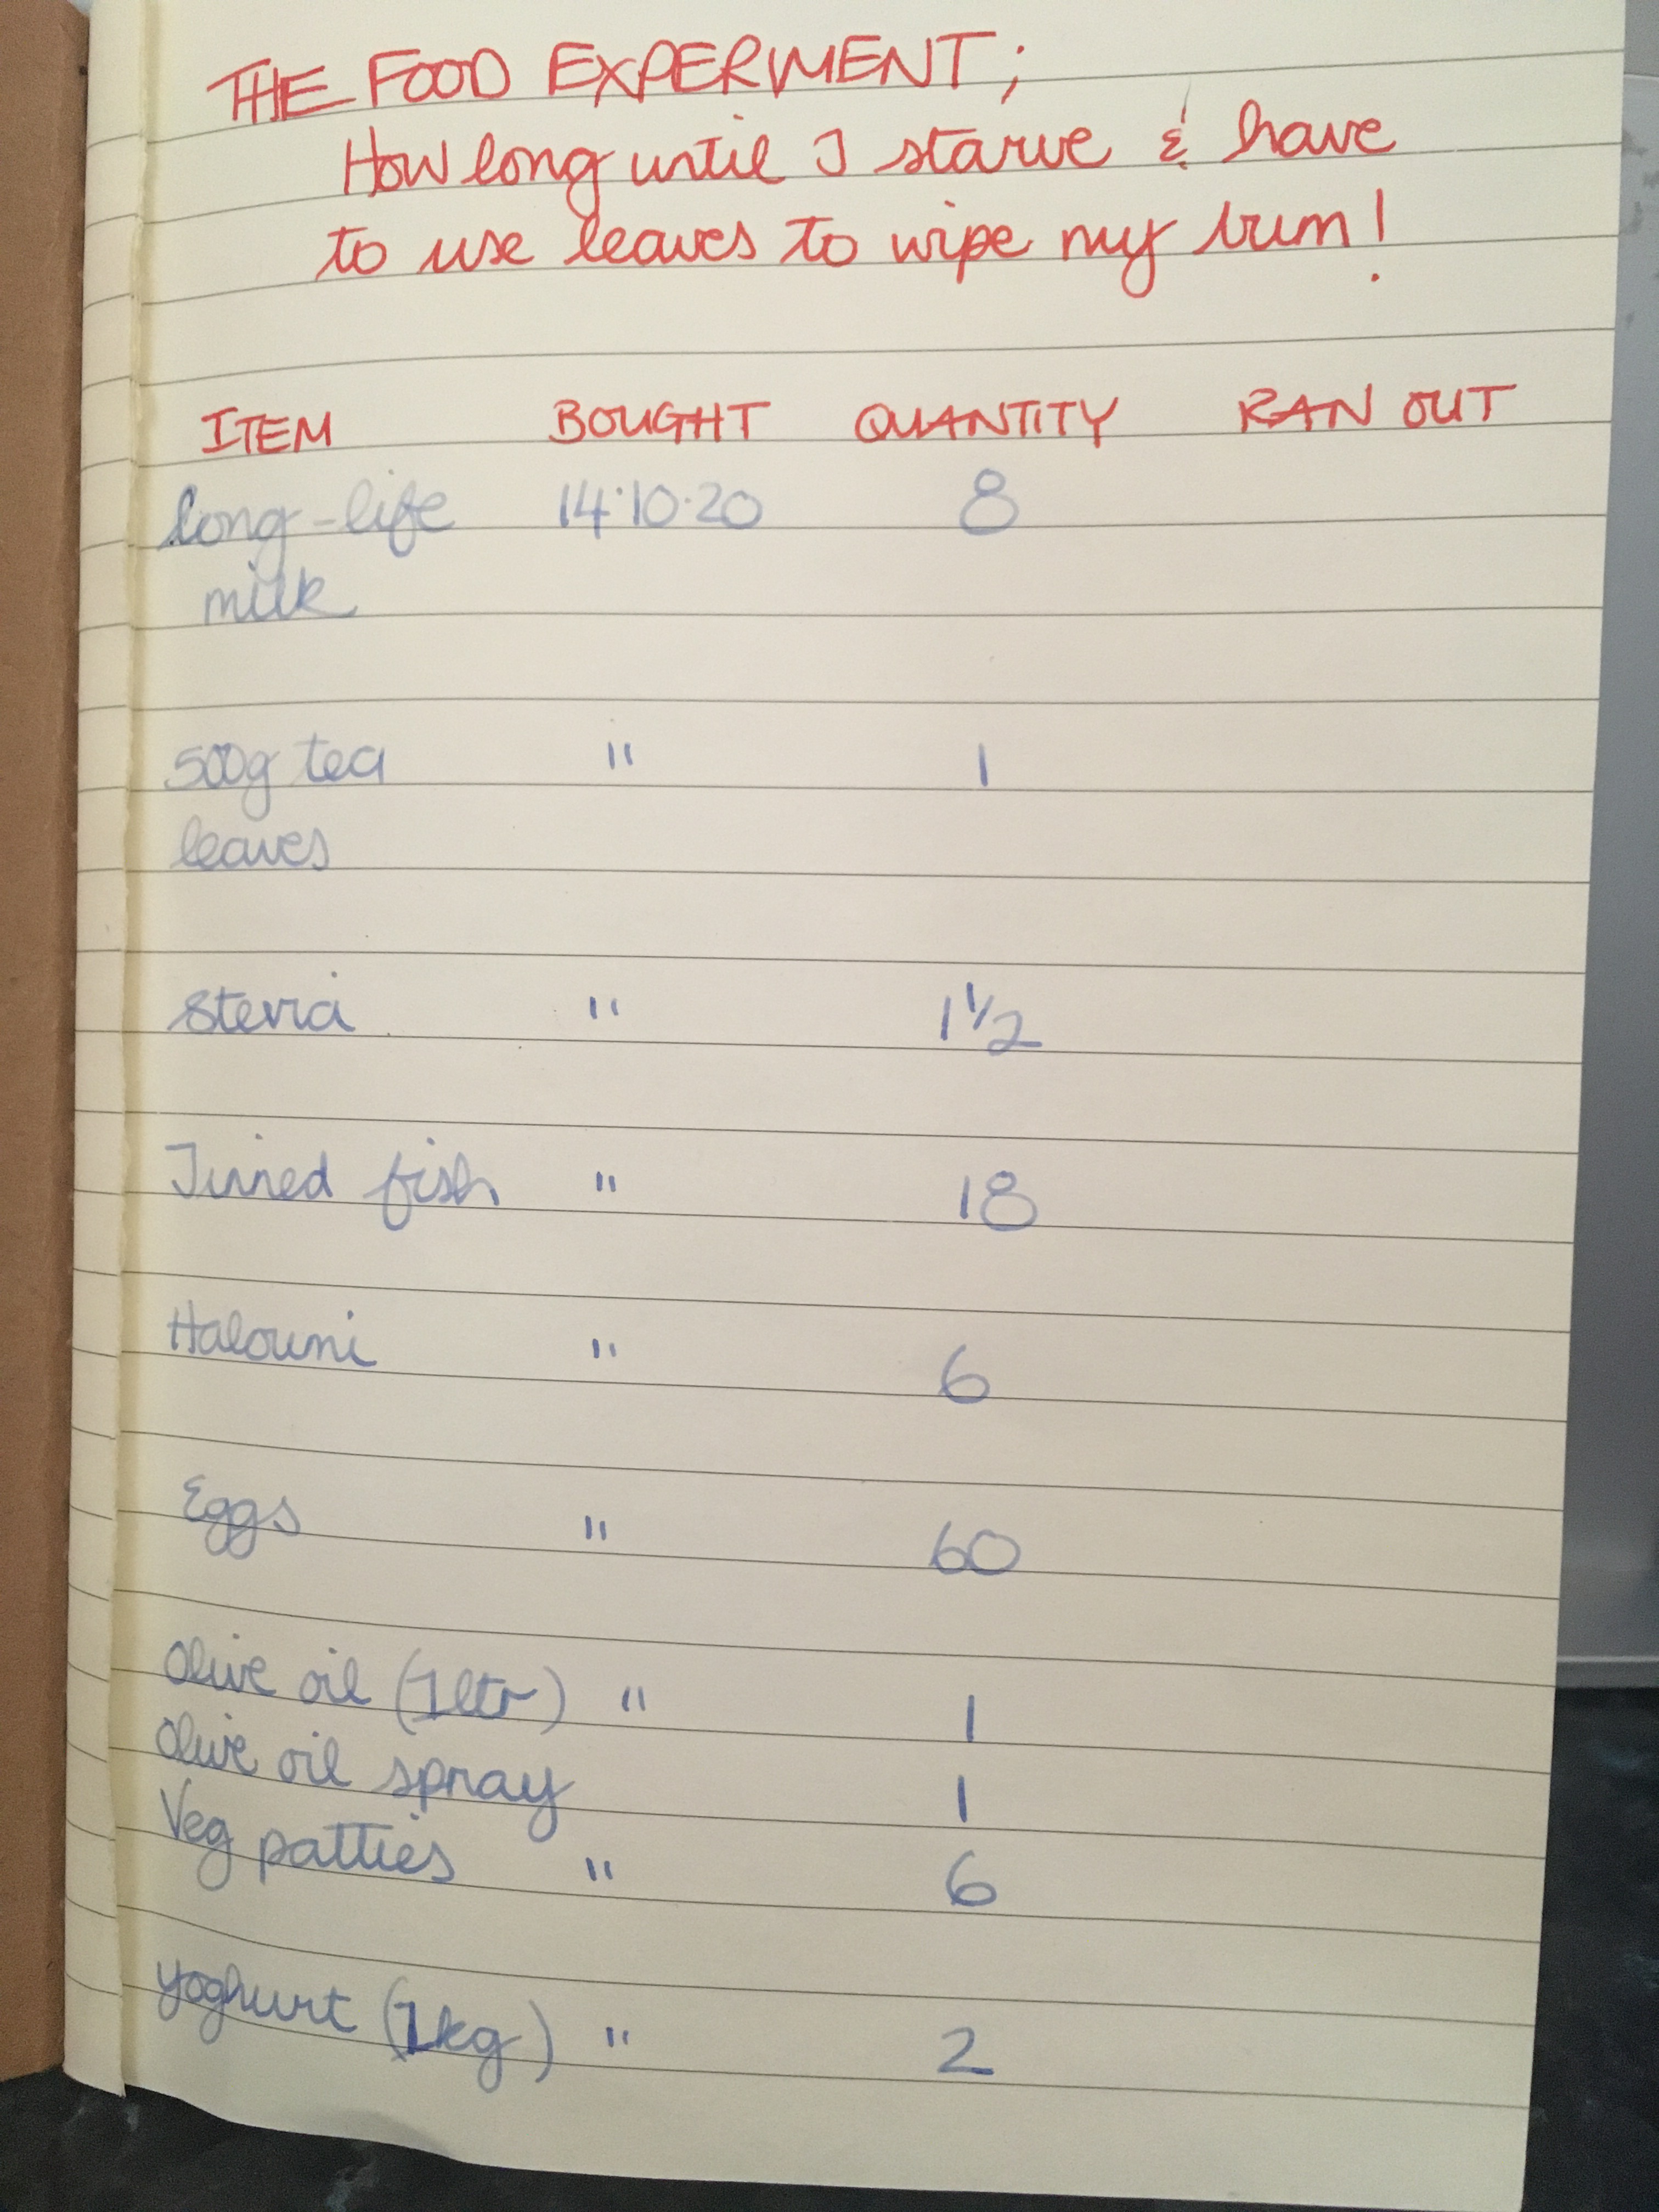 THE FOOD EXPERIMENT;
How long until I starve & have
to use leaves to wipe my bum!
ITEM BOUGHT QUANTITY RAN OUT
long-life 14.10.20 8
milk
500g tea " 1
leaves
Stevia " 1 1/2
Tinned fish " 18
Halouni " 6
Eggs " 60
Olive oil (1ltr) " 1
Olive oil spray 1
Veg patties " 6
yoghurt (1kg) " 2